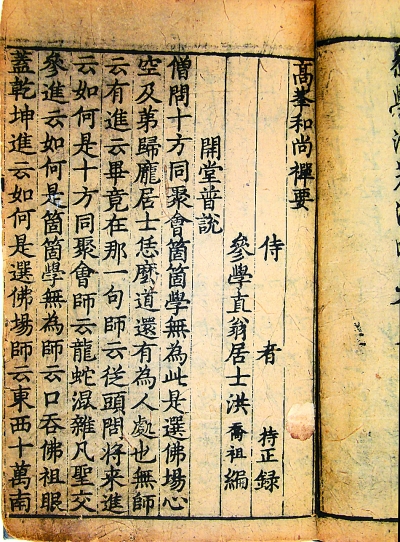 高峯和尚禪要
侍者持正錄
參學直翁居士洪喬祖編
開堂普說
僧問十方同聚會箇箇學無為此是選佛場心
空及弟歸龐居士恁麽道還有為人處也無師
云有進云畢竟在那一句師云従頭問將来進
云如何是十方同聚會師云龍蛇混雜凡聖交
參進云如何是箇箇學無為師云口吞佛祖眼
蓋乾坤進云如何是選佛場師云東西十萬南